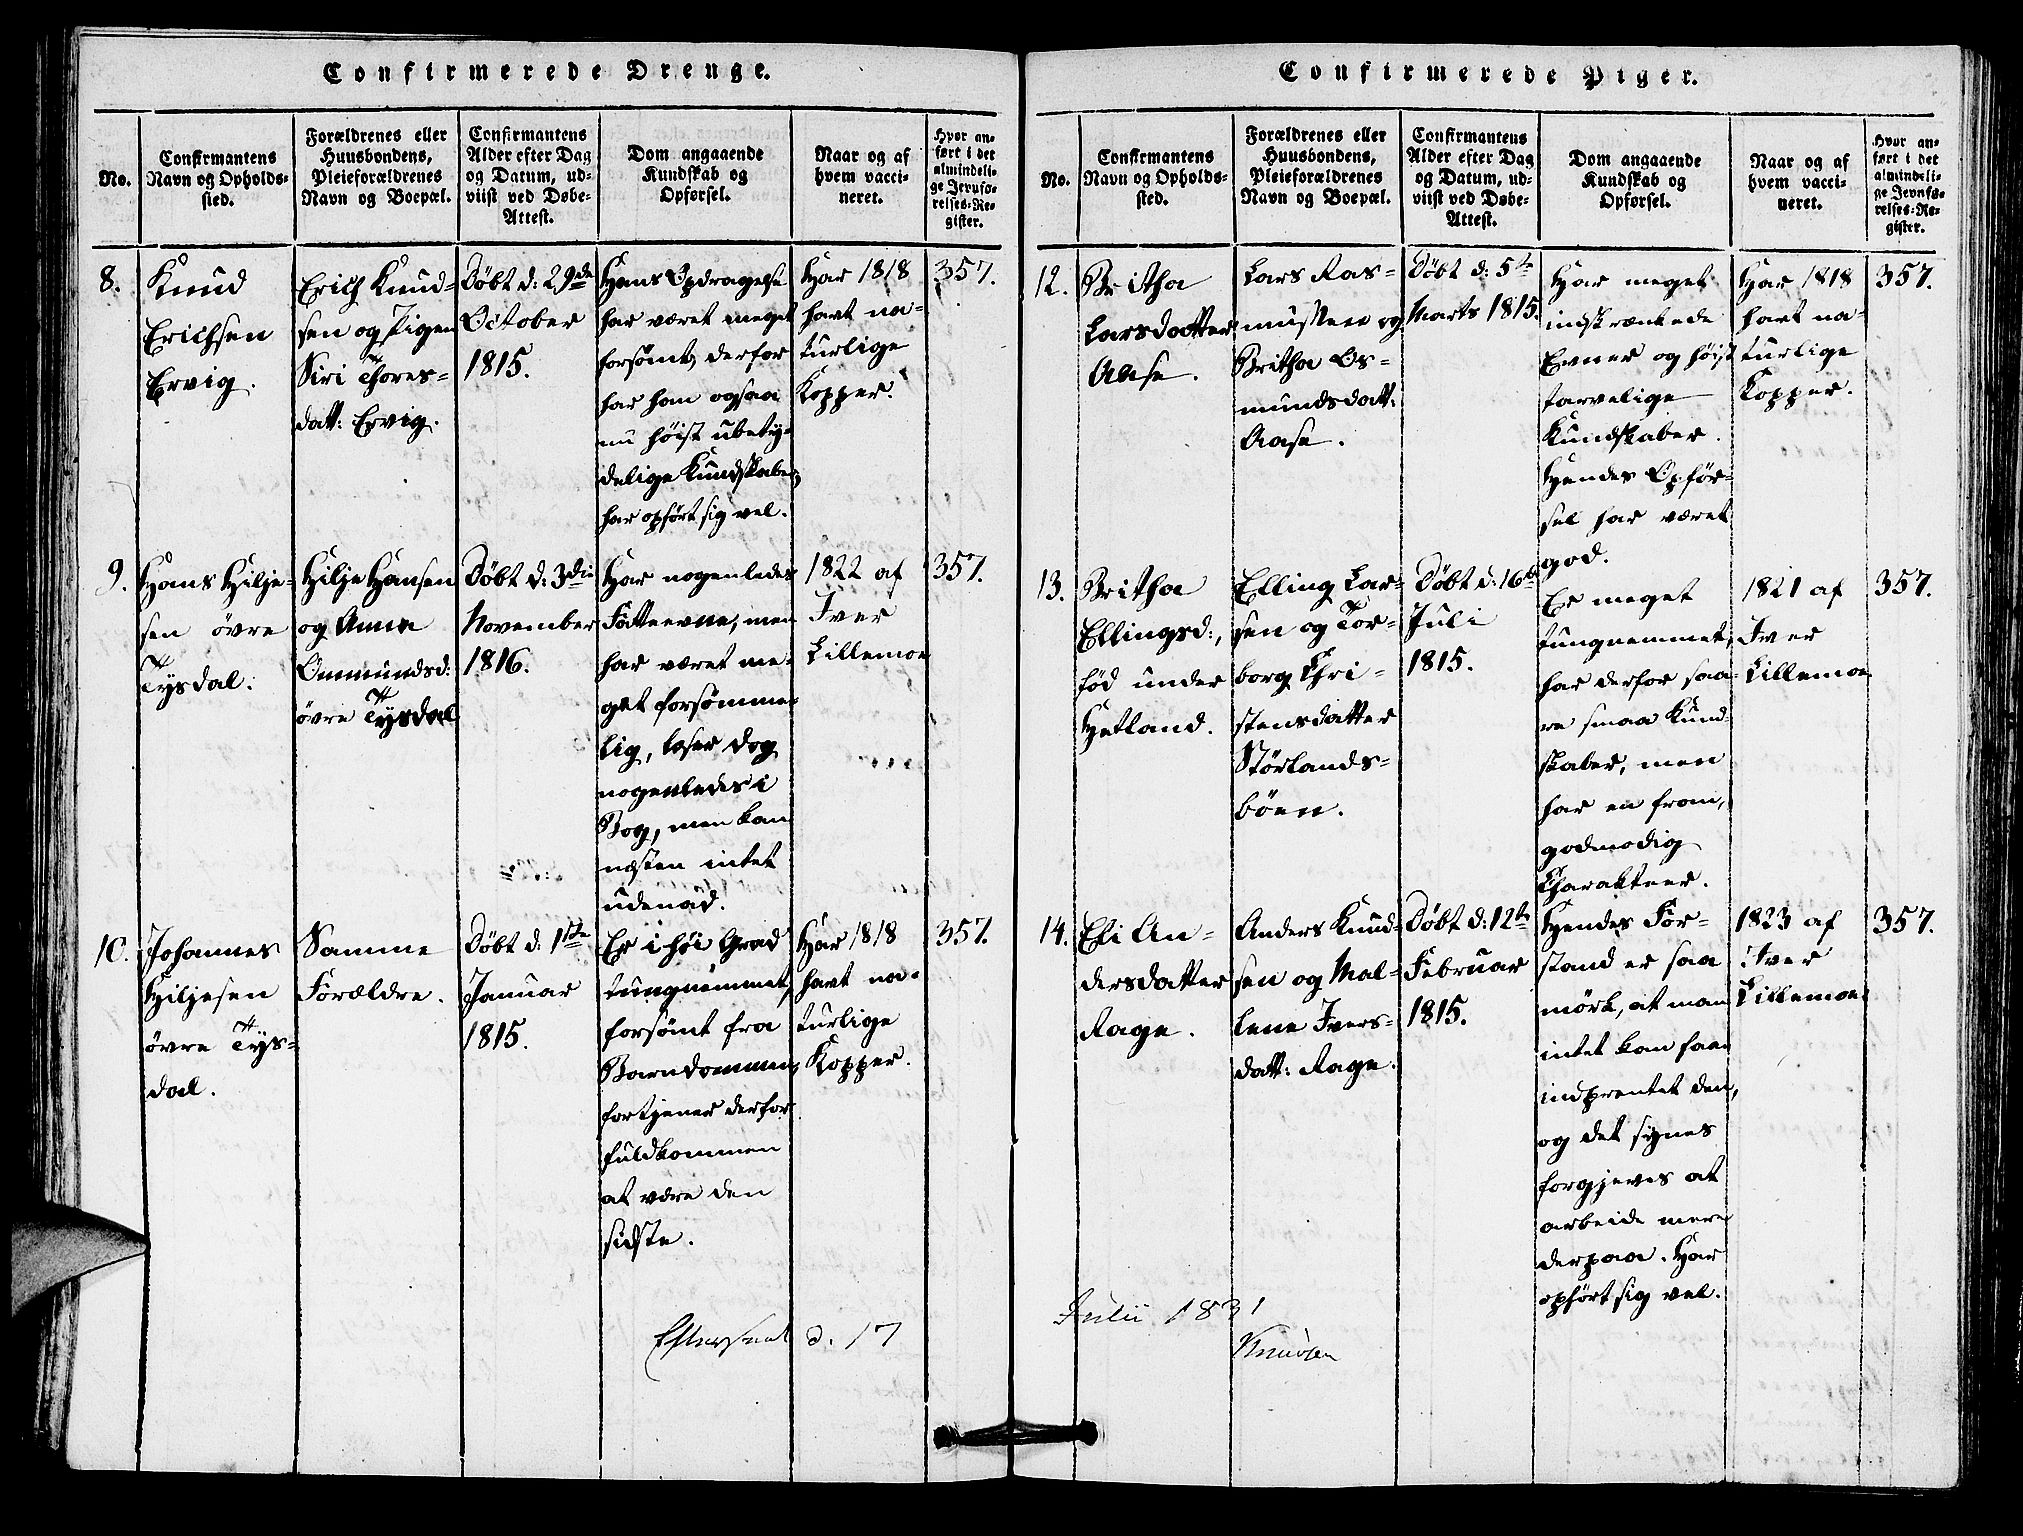 Confirmerede Drenge.
No.
Confirmantens
Navn og Opholds-
sted.
Forældrenes eller
Huusbondens,
Pleieforældrenes
Navn og Boepæl.
Confirmantens
Alder efter Dag
og Datum, ud-
viist ved Døbe-
Attest.
Dom angaaende
Kundskab og
Opførsel.
Naar og af
hvem vacci-
neret.
Hvor an-
ført i det
almindeli-
ge Jevnfø-
relses-Re-
gister.
8.
Knud
Erichsen
Ervig.
Erich Knud-
sen og Pigen
Siri Thores-
datt: Ervig.
Døbt d: 29de
October
1815.
Hans Opdragelse
har været meget
forsømt, derfor
har han ogsaa
nu høist ubety-
delige Kundskaber,
har opført sig vel.
Har 1818
havt na-
turlige
Kopper.
357.
9.
Hans Hilje-
sen øvre
Tysdal.
Hilje Hansen
og Anna
Ommundsd:
øvre Tysdal
Døbt d: 3die
November
1816.
Har nogenledes
Fatteevne, men
har været me-
get forsømme-
lig, læser dog
nogenledes i
Bog, men kan
næsten intet
udenad.
1822 af
Iver
Lillemoe
357.
10.
Johannes
Hiljesen
øvre Tys-
dal.
Samme
Forældre.
Døbt d: 1ste
Januar
1815.
Er i høi Grad
tungnemmet,
forsømt fra
Barndommen,
fortjener derfor
fuldkommen
at være den
sidste.
Har 1818
havt na-
turlige
Kopper.
357.
Efterseet d. 17
Confirmerede Piger.
No.
Confirmantens
Navn og Opholds-
sted.
Forældrenes eller
Huusbondens,
Pleieforældrenes
Navn og Boepæl.
Confirmantens
Alder efter Dag
og Datum, ud-
viist ved Døbe-
Attest.
Dom angaaende
Kundskab og
Opførsel.
Naar og af
hvem vacci-
neret.
Hvor an-
ført i det
almindeli-
ge Jevnfø-
relses-Re-
gister.
12.
Britha
Larsdatter
Aase.
Lars Ras-
mussen og
Britha Os-
mundsdatt:
Aase.
Døbt d: 5te
Marts 1815.
Har meget
indskrænkede
Evner og høist
tarvelige
Kundskaber.
Hendes Opfør-
sel har været
god.
Har 1818
havt na-
turlige
Kopper.
357.
13.
Britha
Ellingsd:,
fød under
Hetland.
Elling Lar-
sen og Tor-
borg Chri-
stensdatter
Størlands-
bøen.
Døbt d: 16de
Juli
1815.
Er meget
tungnemmet,
har derfor saa-
re smaa Kund-
skaber, men
har en from,
godmodig
Charakteer.
1821 af
Iver
Lillemoe
357.
14.
Eli An-
dersdatter
Rage.
Anders Knud-
sen og Mal-
lene Ivers-
datt: Rage.
Døbt d: 12te
Februar
1815.
Hendes For-
stand er saa
mørk, at man
intet kan faae
indprentet den,
og det synes
forgjeves at
arbeide mere
derpaa. Har
opført sig vel.
1823 af
Iver
Lillemoe
357.
Julii 1831